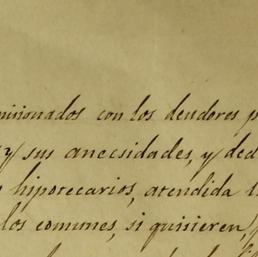 misionados con los deudores p
y sus anecsidades, y ded
hipotecarios, atendida l
los comunes, si quisieren,